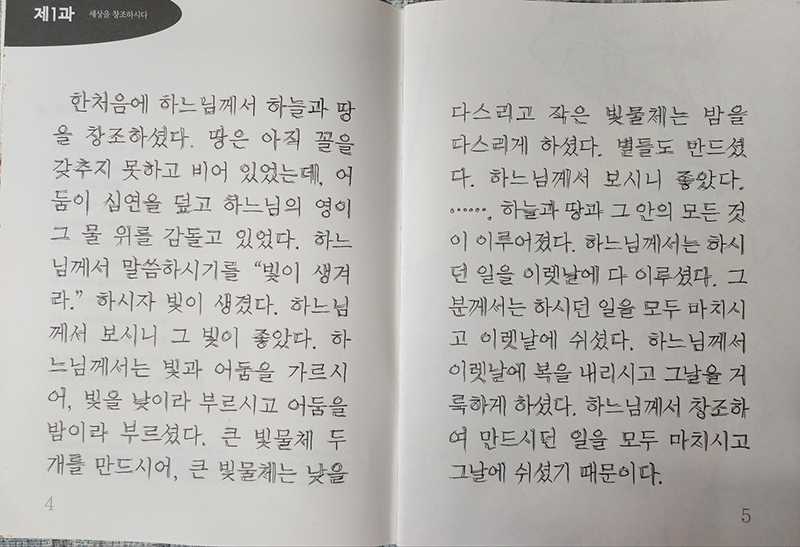 제1과 세상을 창조하시다
한처음에 하느님께서 하늘과 땅
을 창조하셨다. 땅은 아직 꼴을
갖추지 못하고 비어 있었는데, 어
둠이 심연을 덮고 하느님의 영이
그 물 위를 감돌고 있었다. 하느
님께서 말씀하시기를 “빛이 생겨
라.” 하시자 빛이 생겼다. 하느님
께서 보시니 그 빛이 좋았다. 하
느님께서는 빛과 어둠을 가르시
어, 빛을 낮이라 부르시고 어둠을
밤이라 부르셨다. 큰 빛물체 두
개를 만드시어, 큰 빛물체는 낮을
4
다스리고 작은 빛물체는 밤을
다스리게 하셨다. 별들도 만드셨
다. 하느님께서 보시니 좋았다.
……. 하늘과 땅과 그 안의 모든 것
이 이루어졌다. 하느님께서는 하시
던 일을 이렛날에 다 이루셨다. 그
분께서는 하시던 일을 모두 마치시
고 이렛날에 쉬셨다. 하느님께서
이렛날에 복을 내리시고 그날을 거
룩하게 하셨다. 하느님께서 창조하
여 만드시던 일을 모두 마치시고
그날에 쉬셨기 때문이다.
5